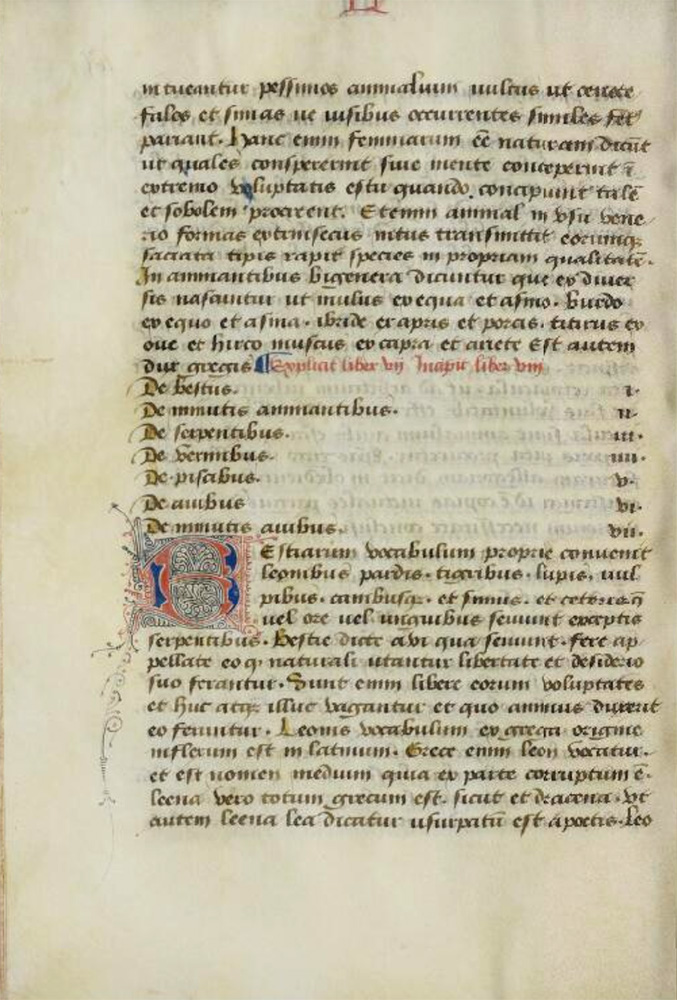 intueantur pessimos animalium uultus ut ceneste
falos et simias ne uisibus occurrentes similes fet᷒
pariant. Hanc enim feminarum eē naturam dicūt
ut quales consperexint siue mente conceperint ī
extremo voluptatis estu quando. concipiunt talē
et sobolem procreent. Etenim animal in vsu vene
rio formas extrinsecus intus transmittit eorumqꝫ
saciata tipis rapit species in propriam qualitatē.
In animantibus bigenera dicuntur que ex diuer
sis nascuntur ut mulus ex equa et asino. burdo
ex equo et asina. ibride ex apris et porcis. titirus ex
oue et hirco muscus ex capra et ariete Est autem
dux gregis Explicit liber vij Incipit liber viij
De bestiis. i.
De minutis animantibus. ii.
De serpentibus. iii.
De vermibus. iiii.
De piscibus. v.
De auibus vi.
De minutis auibus. vii.
Bestiarum vocabulum proprie conuenit
leonibus pardis. tigribus. lupis. uul
pibus. canibusqꝫ. et simiis. et ceteris q̄
uel ore uel unguibus seuiunt exceptis
serpentibus. Bestie dicte a vi qua seuiunt. Fere ap
pellate eo qꝫ naturali utantur libertate et desiderio
suo ferantur. Sunt enim libere eorum voluptates
et huc atqꝫ illuc vagantur et quo animus duxerit
eo feruntur. Leonis vocabulum ex greca origine
inflexum est in latinum. Grece enim leon vocatur.
et est nomen medium quia ex parte corruptum ē.
leena vero totum grecum est. sicut et dracena. vt
autem leena lea dicatur usurpatū est a poetis. Leo